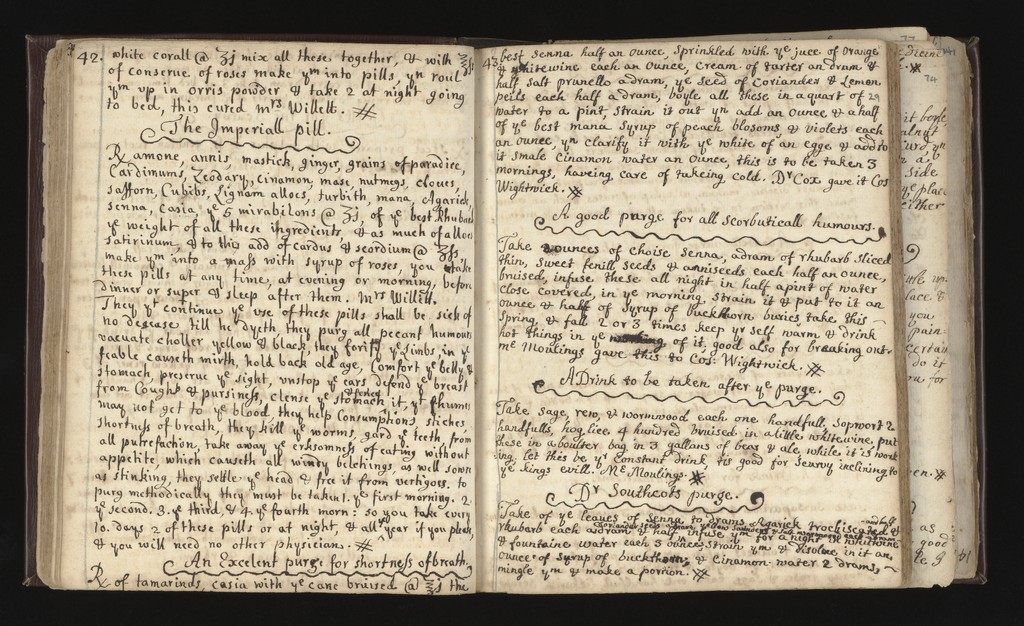 42.
white corall @ ʒj mix all these together, & with ʒss
of conserve of roses make ym into pills, yn roul
ym up in orris powder & take 2 at night going
to bed, this cured mrs Willett.
The Imperiall pill.
℞ amone, annis mastick, ginger, grains of paradice,
Cardimums, Zeodary, cinamon, mase, nutmegs, cloves,
safforn, Cubibs, Lignam alloes, turbith, mana, Agarick,
senna, Casia, ye 5 mirabilons @ ʒj, of ye best Rhubarb
ye weight of all these ingredients, & as much of alloes
satirinum, & to this add of cardus & scordium @ ʒss
make ym into a mass with syrup of roses, you take
these pills at any time, at evening or morning, before
dinner or super & sleep after them. Mrs Willett.
They yt continue ye use of these pills shall be sick of
no desease till he dyeth, they purg all pecant humours
vacuate choller yellow & black, they forify ye limbs, in ye
feable causeth mirth, hold back old age, Comfort ye belly &
stomach, preserve ye sight, unstop ye ears defend ye breast
from Coughs & pursiness, clense ye stomach it, yt rhums
may not get to ye blood they help Consumptions, stiches,
shortness of breath, they kill ye worms, gard ye teeth, from
all putrefaction, take away ye erksomness of eating without
appetite, which causeth all windy belchings, as well sowr
as stinking, they settle ye head & free it from vertigoes. to
purg methodically they must be taken 1. ye first morning. 2.
ye second. 3. ye third, & 4. ye fourth morn: so you take every
10. days 2 of these pills or at night, & all ye year if you please
& you will need no other physicians.
An Excelent purge for shortness of breath.
℞ of tamarinds, casia with ye cane bruised @ ʒj the
43
best senna half an ounce, sprinkled with ye juce of orange
& whitewine each an ounce, cream of tarter a dram &
half salt prunello a dram, ye seed of Coriander & Lemon
peils each half a dram, boyle all these in a quart of
water to a pint, strain it out yn add an ounce & a half
of ye best mana syrup of peach blosoms & violets each
an ounce, yn clarify it with ye white of an egg & add to
it smale cinamon water an ounce, this is to be taken 3
mornings, haveing care of takeing cold. Dr Cox gave it Cos
Wightwick.
A good purge for all scorbuticall humours.
Take ounces of Choise senna, a dram of rhubarb sliced
thin, sweet fenill seeds & anniseeds each half an ounce,
bruised, infuse these all night in half a pint of water
close covered, in ye morning strain it & put to it an
ounce & half of syrup of buckthorn buries take this
spring & fall 2 or 3 times keep yr self warm & drink
hot things in ye of it, good also for breaking out-
me Moulings gave this to Cos: Wightwick.
A Drink to be taken after ye purge.
Take sage, rew, & wormwood each one handfull, sopwort 2
handfulls, hog lice 4 hundred bruised in a little whitewine, put
these in a boulter bag in 3 gallans of beas & ale, while it is work
-ing, let this be yr Constant drink, tis good for scurvy inclening to
ye kings evill. Me Moulings.
Dr Southcots purge.
Take of ye leaves of senna to drams Agarick trochiscated &
rhubarb each a dram & half, infuse ym for a night in whitewine
& fountaine water each 3 ounces, strain ym & disolve in it an
ounce of syrup of buckthorn, & Cinamon water 2 drams,
mingle ym & make a portion.